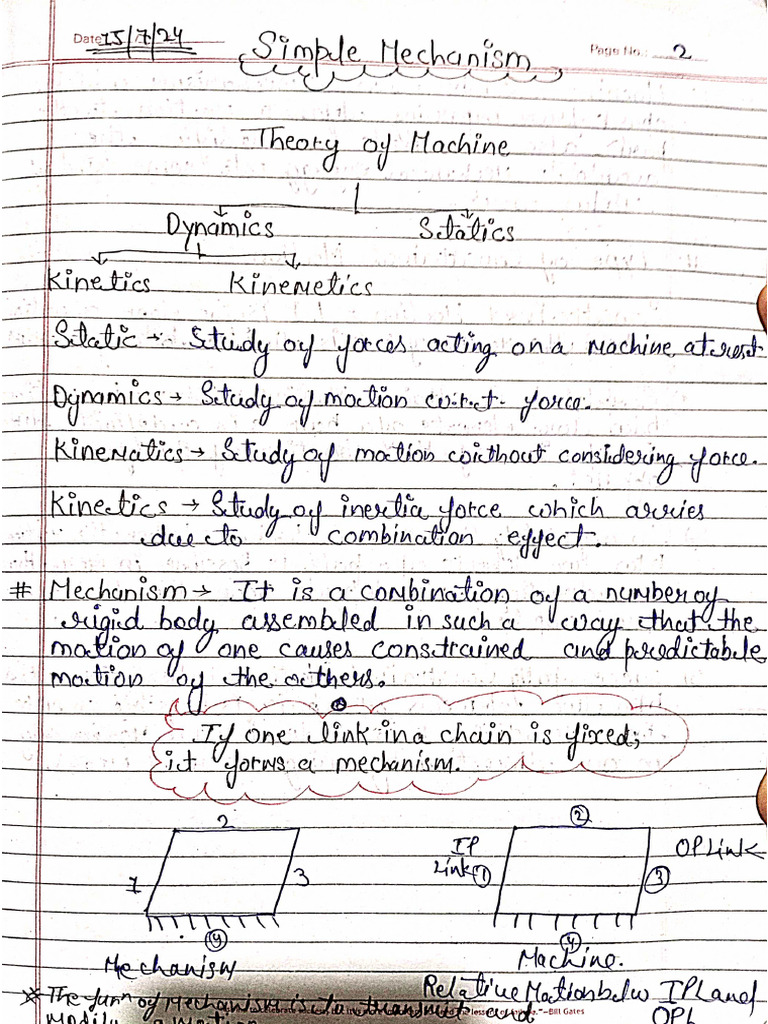 Date 15/7/24
Simple Mechanism
Page No. 2
Theory of Machine
Dynamics Statics
Kinetics Kinemetics
Static → Study of forces acting on a Machine at rest
Dynamics → Study of motion w.r.t. force.
Kinematics → Study of motion without considering force.
Kinetics → Study of inertia force which arries
due to combination effect.
# Mechanism → It is a combination of a number of
rigid body assembled in such a way that the
motion of one causes constrained and predictable
motion of the others.
If one link in a chain is fixed;
it forms a mechanism.
2
1
3
4
Mechanism
2
IP
Link 1
OP Link
3
4
Machine.
Relative Motion b/w IPL and
OPL
* The funn of Mechanism is to transmit and
Modify a Motion
"–Bill Gates